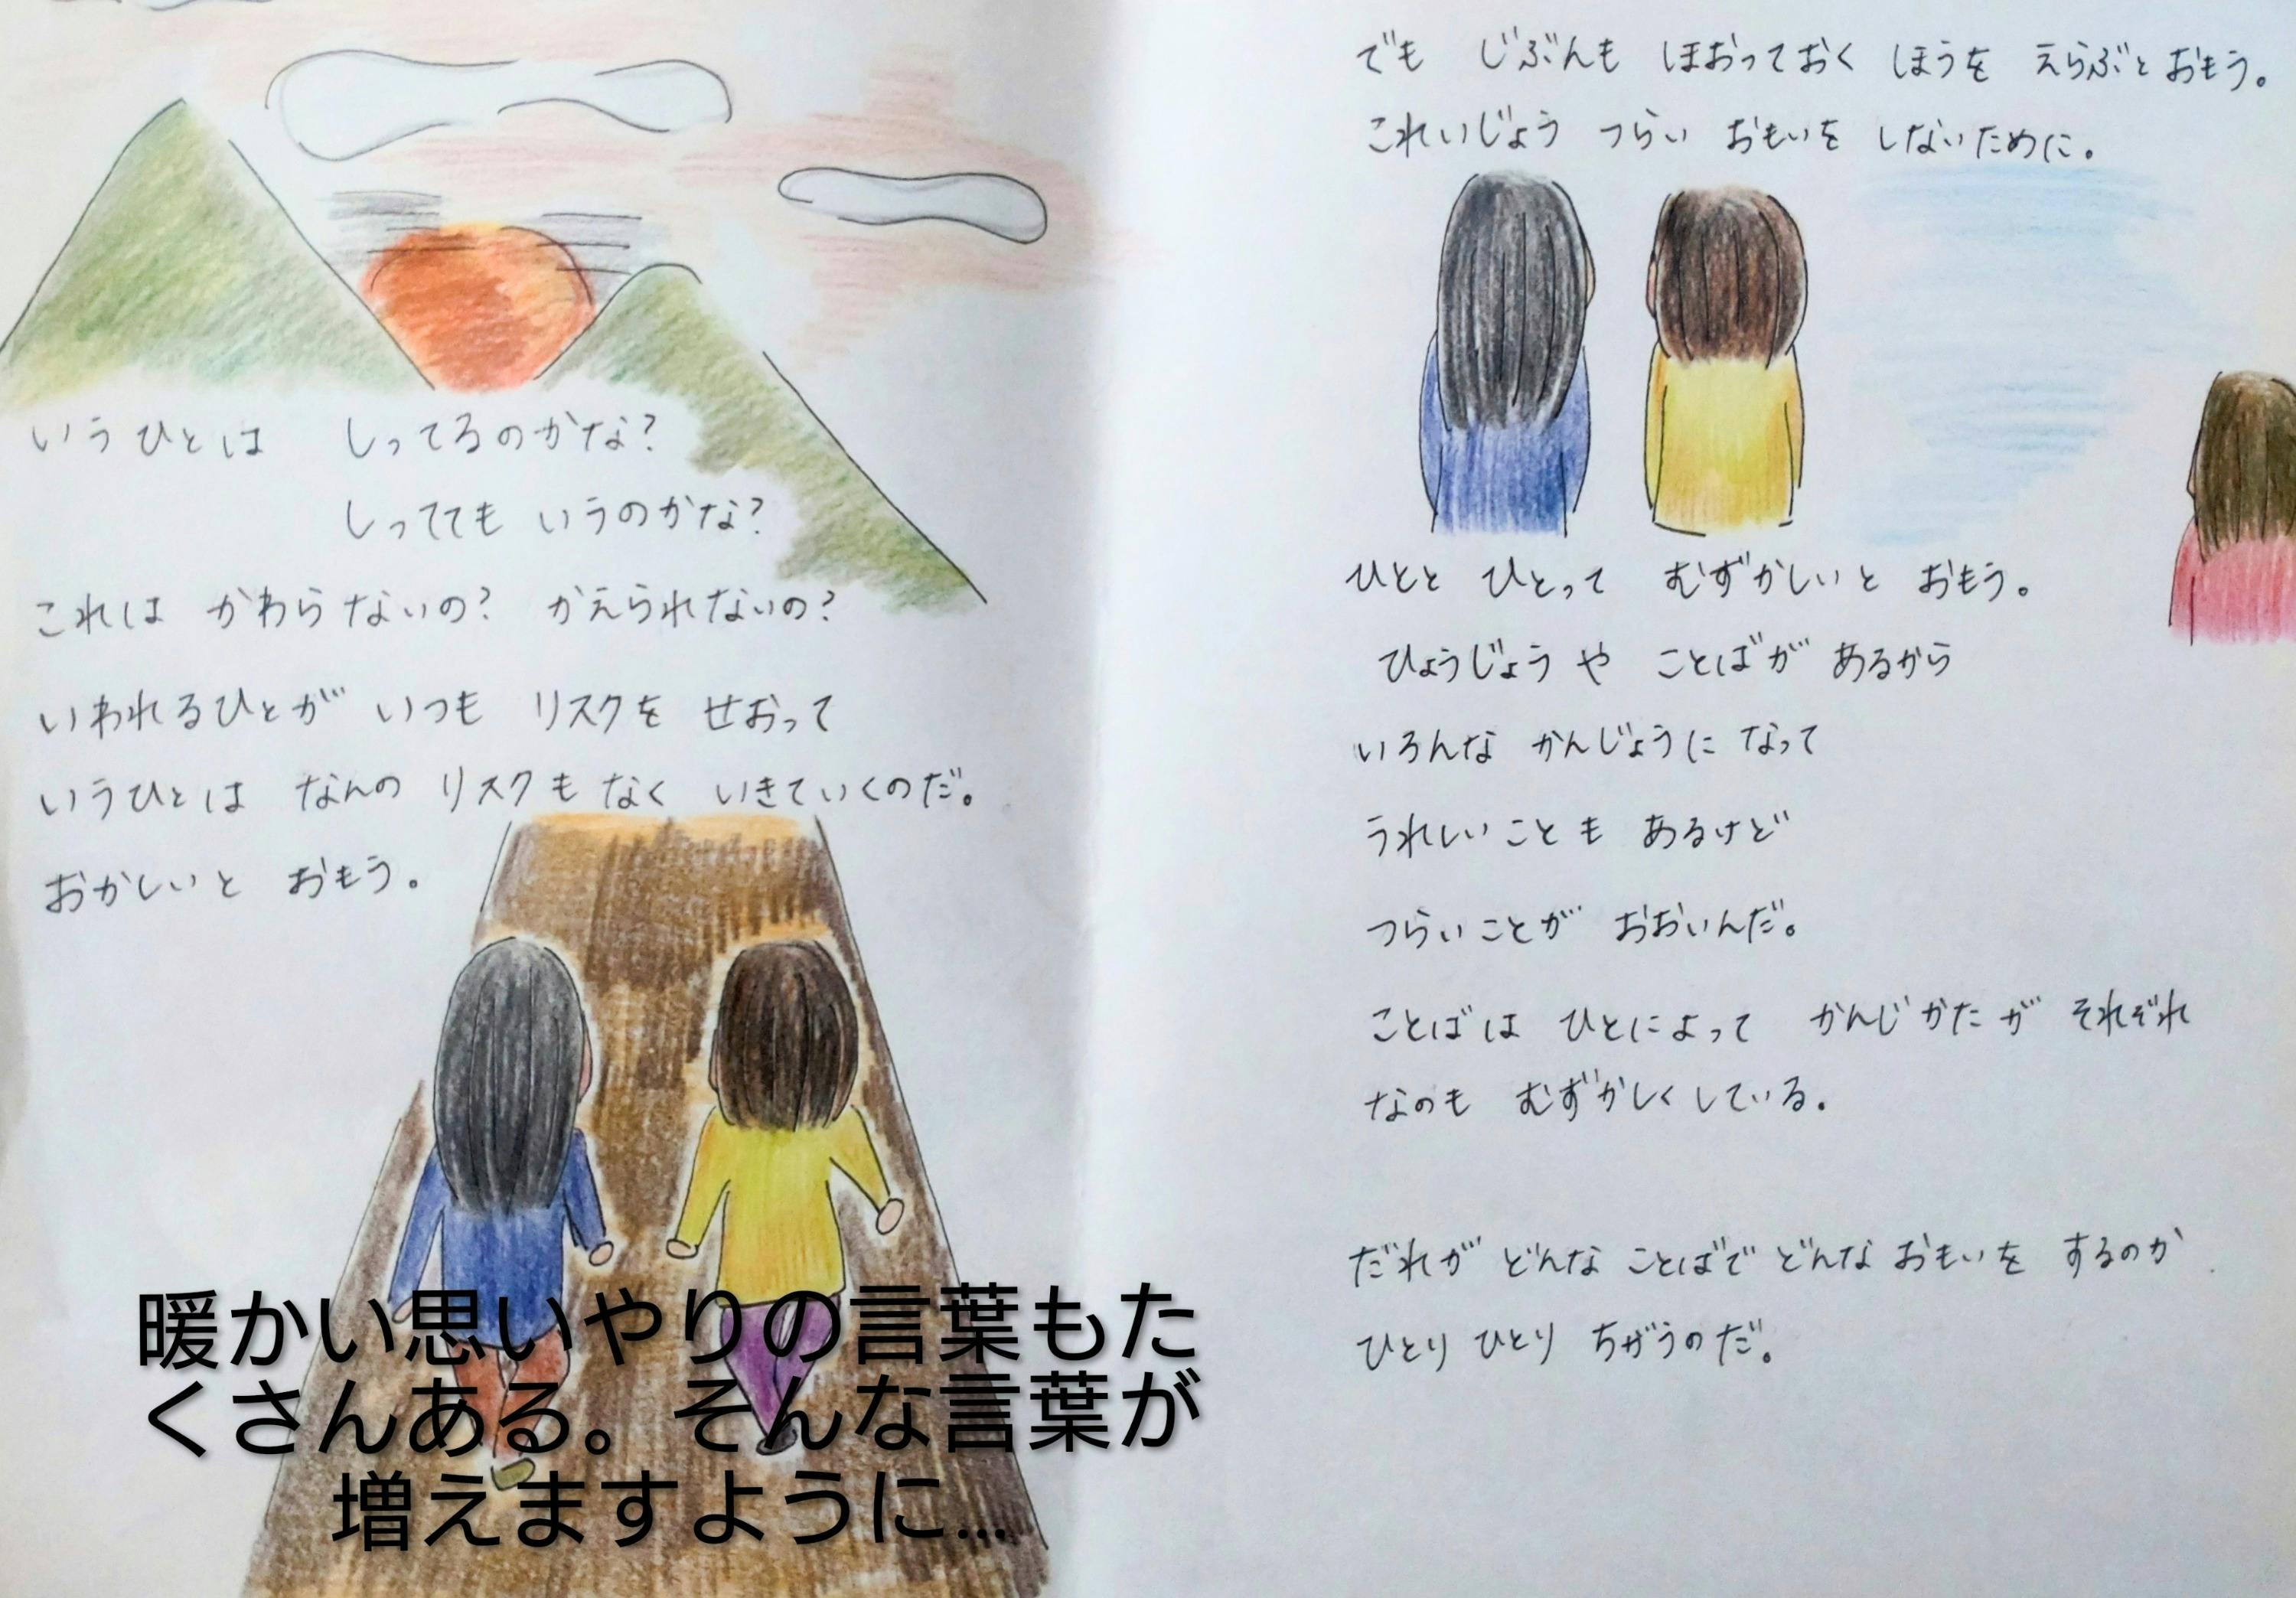 いうひとは しってるのかな?
しってても いうのかな?
これは かわらないの? かえられないの?
いわれるひとが いつも リスクを せおって
いうひとは なんの リスクも なく いきていくのだ。
おかしいと おもう。
暖かい思いやりの言葉もた
くさんある。そんな言葉が
増えますように...
でも じぶんも ほおっておく ほうを えらぶと おもう。
これいじょう つらい おもいを しないために。
ひとと ひとって むずかしいと おもう。
ひょうじょうや ことばが あるから
いろんな かんじょうに なって
うれしいことも あるけど
つらいことが おおいんだ。
ことばは ひとによって かんじかたが それぞれ
なのも むずかしくしている。
だれが どんな ことばで どんな おもいを するのか
ひとり ひとり ちがうのだ。